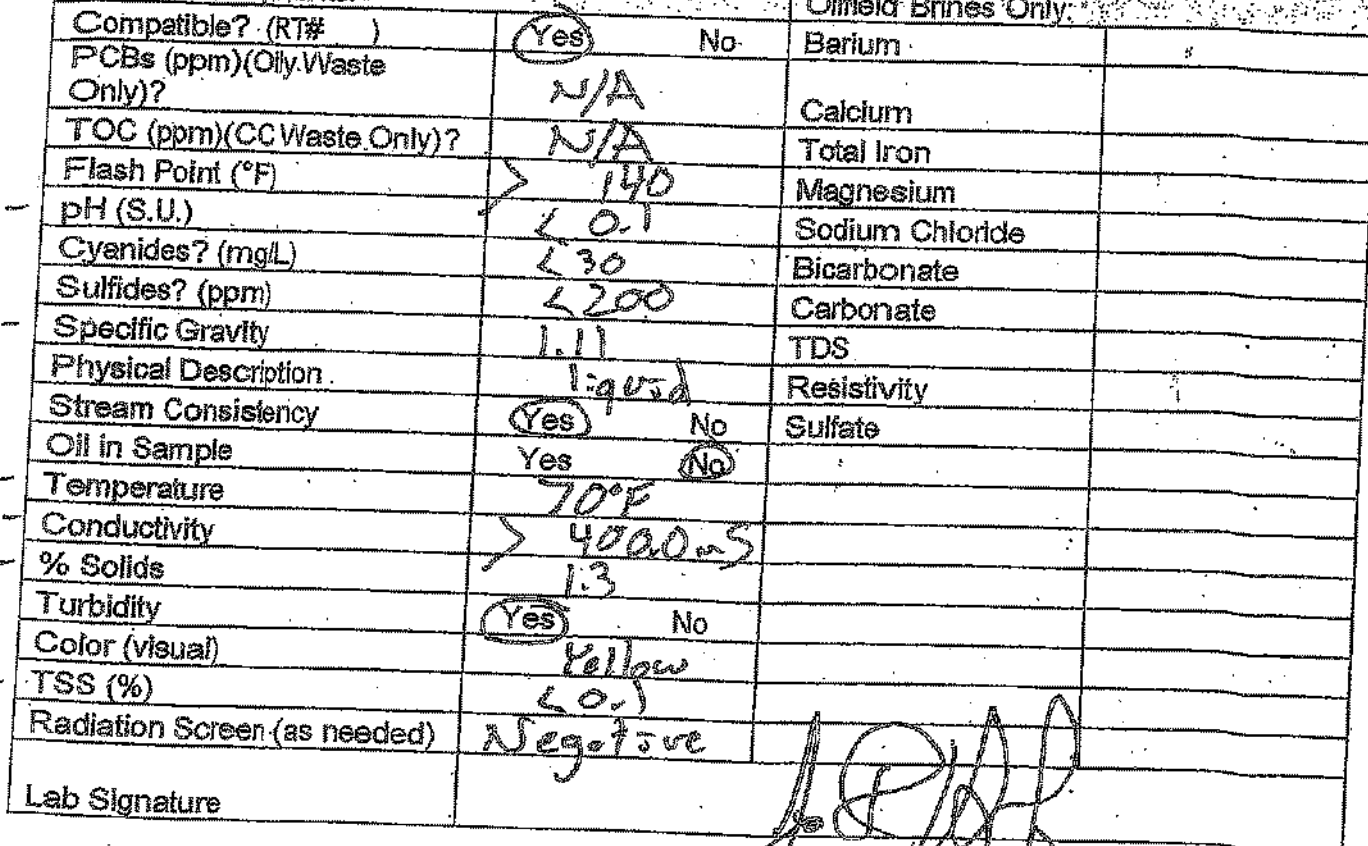 Oilfield Brines Only:
Compatible? (RT# ) Yes No Barium
PCBs (ppm)(Oily Waste
Only)? N/A Calcium
TOC (ppm)(CC Waste Only)? N/A Total Iron
Flash Point (°F) > 140 Magnesium
pH (S.U.) < 0.1 Sodium Chloride
Cyanides? (mg/L) < 30 Bicarbonate
Sulfides? (ppm) < 200 Carbonate
Specific Gravity 1.11 TDS
Physical Description liquid Resistivity
Stream Consistency Yes No Sulfate
Oil in Sample Yes No
Temperature 70°F
Conductivity > 400.0 mS
% Solids 1.3
Turbidity Yes No
Color (visual) Yellow
TSS (%) < 0.1
Radiation Screen (as needed) Negative
Lab Signature